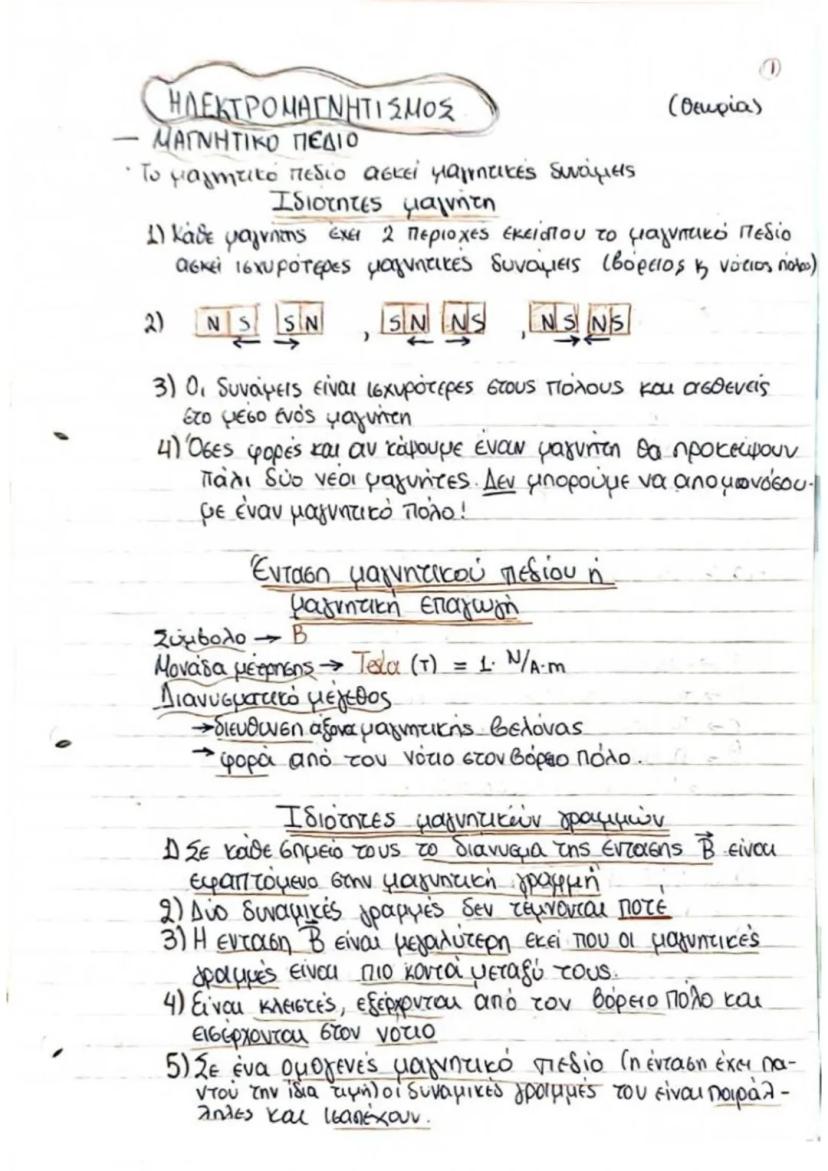 1
ΗΛΕΚΤΡΟΜΑΓΝΗΤΙΣΜΟΣ (Θεωρία)
— ΜΑΓΝΗΤΙΚΟ ΠΕΔΙΟ
· Το μαγνητικό πεδίο ασκεί μαγνητικές δυνάμεις
Ιδιότητες μαγνήτη
1) Κάθε μαγνήτης έχει 2 περιοχές εκεί όπου το μαγνητικό πεδίο
ασκεί ισχυρότερες μαγνητικές δυνάμεις (βόρειος ϗ νότιος πόλο)
2) N S S N , S N N S , N S N S
← → ← → → ←
3) Οι δυνάμεις είναι ισχυρότερες στους πόλους και ασθενείς
στο μέσο ενός μαγνήτη
4) Όσες φορές και αν κόψουμε έναν μαγνήτη θα προκύψουν
πάλι δύο νέοι μαγνήτες. Δεν μπορούμε να απομωνόσου-
με έναν μαγνητικό πόλο!
Ένταση μαγνητικού πεδίου ή
μαγνητική επαγωγή
Σύμβολο → B
Μονάδα μέτρησης → Tesla (T) = 1· N/A·m
Διανυσματικό μέγεθος
→ διευθυνση άξονα μαγνητικής βελόνας
→ φορά από τον νότιο στον βόρειο πόλο.
Ιδιότητες μαγνητικών γραμμών
1) Σε κάθε σημείο τους το διάνυσμα της έντασης B⃗ είναι
εφαπτόμενο στην μαγνητική γραμμή
2) Δύο δυναμικές γραμμές δεν τέμνονται ποτέ
3) Η ενταση B⃗ είναι μεγαλύτερη εκεί που οι μαγνητικές
γραμμές είναι πιο κοντά μεταξύ τους.
4) Είναι κλειστές, εξέρχονται από τον βόρειο πόλο και
εισέρχονται στον νότιο
5) Σε ένα ομογενές μαγνητικό πεδίο (η ένταση έχει πα-
ντού την ίδια τιμή) οι δυναμικές γραμμές του είναι παράλ-
ληλες και ισαπέχουν.